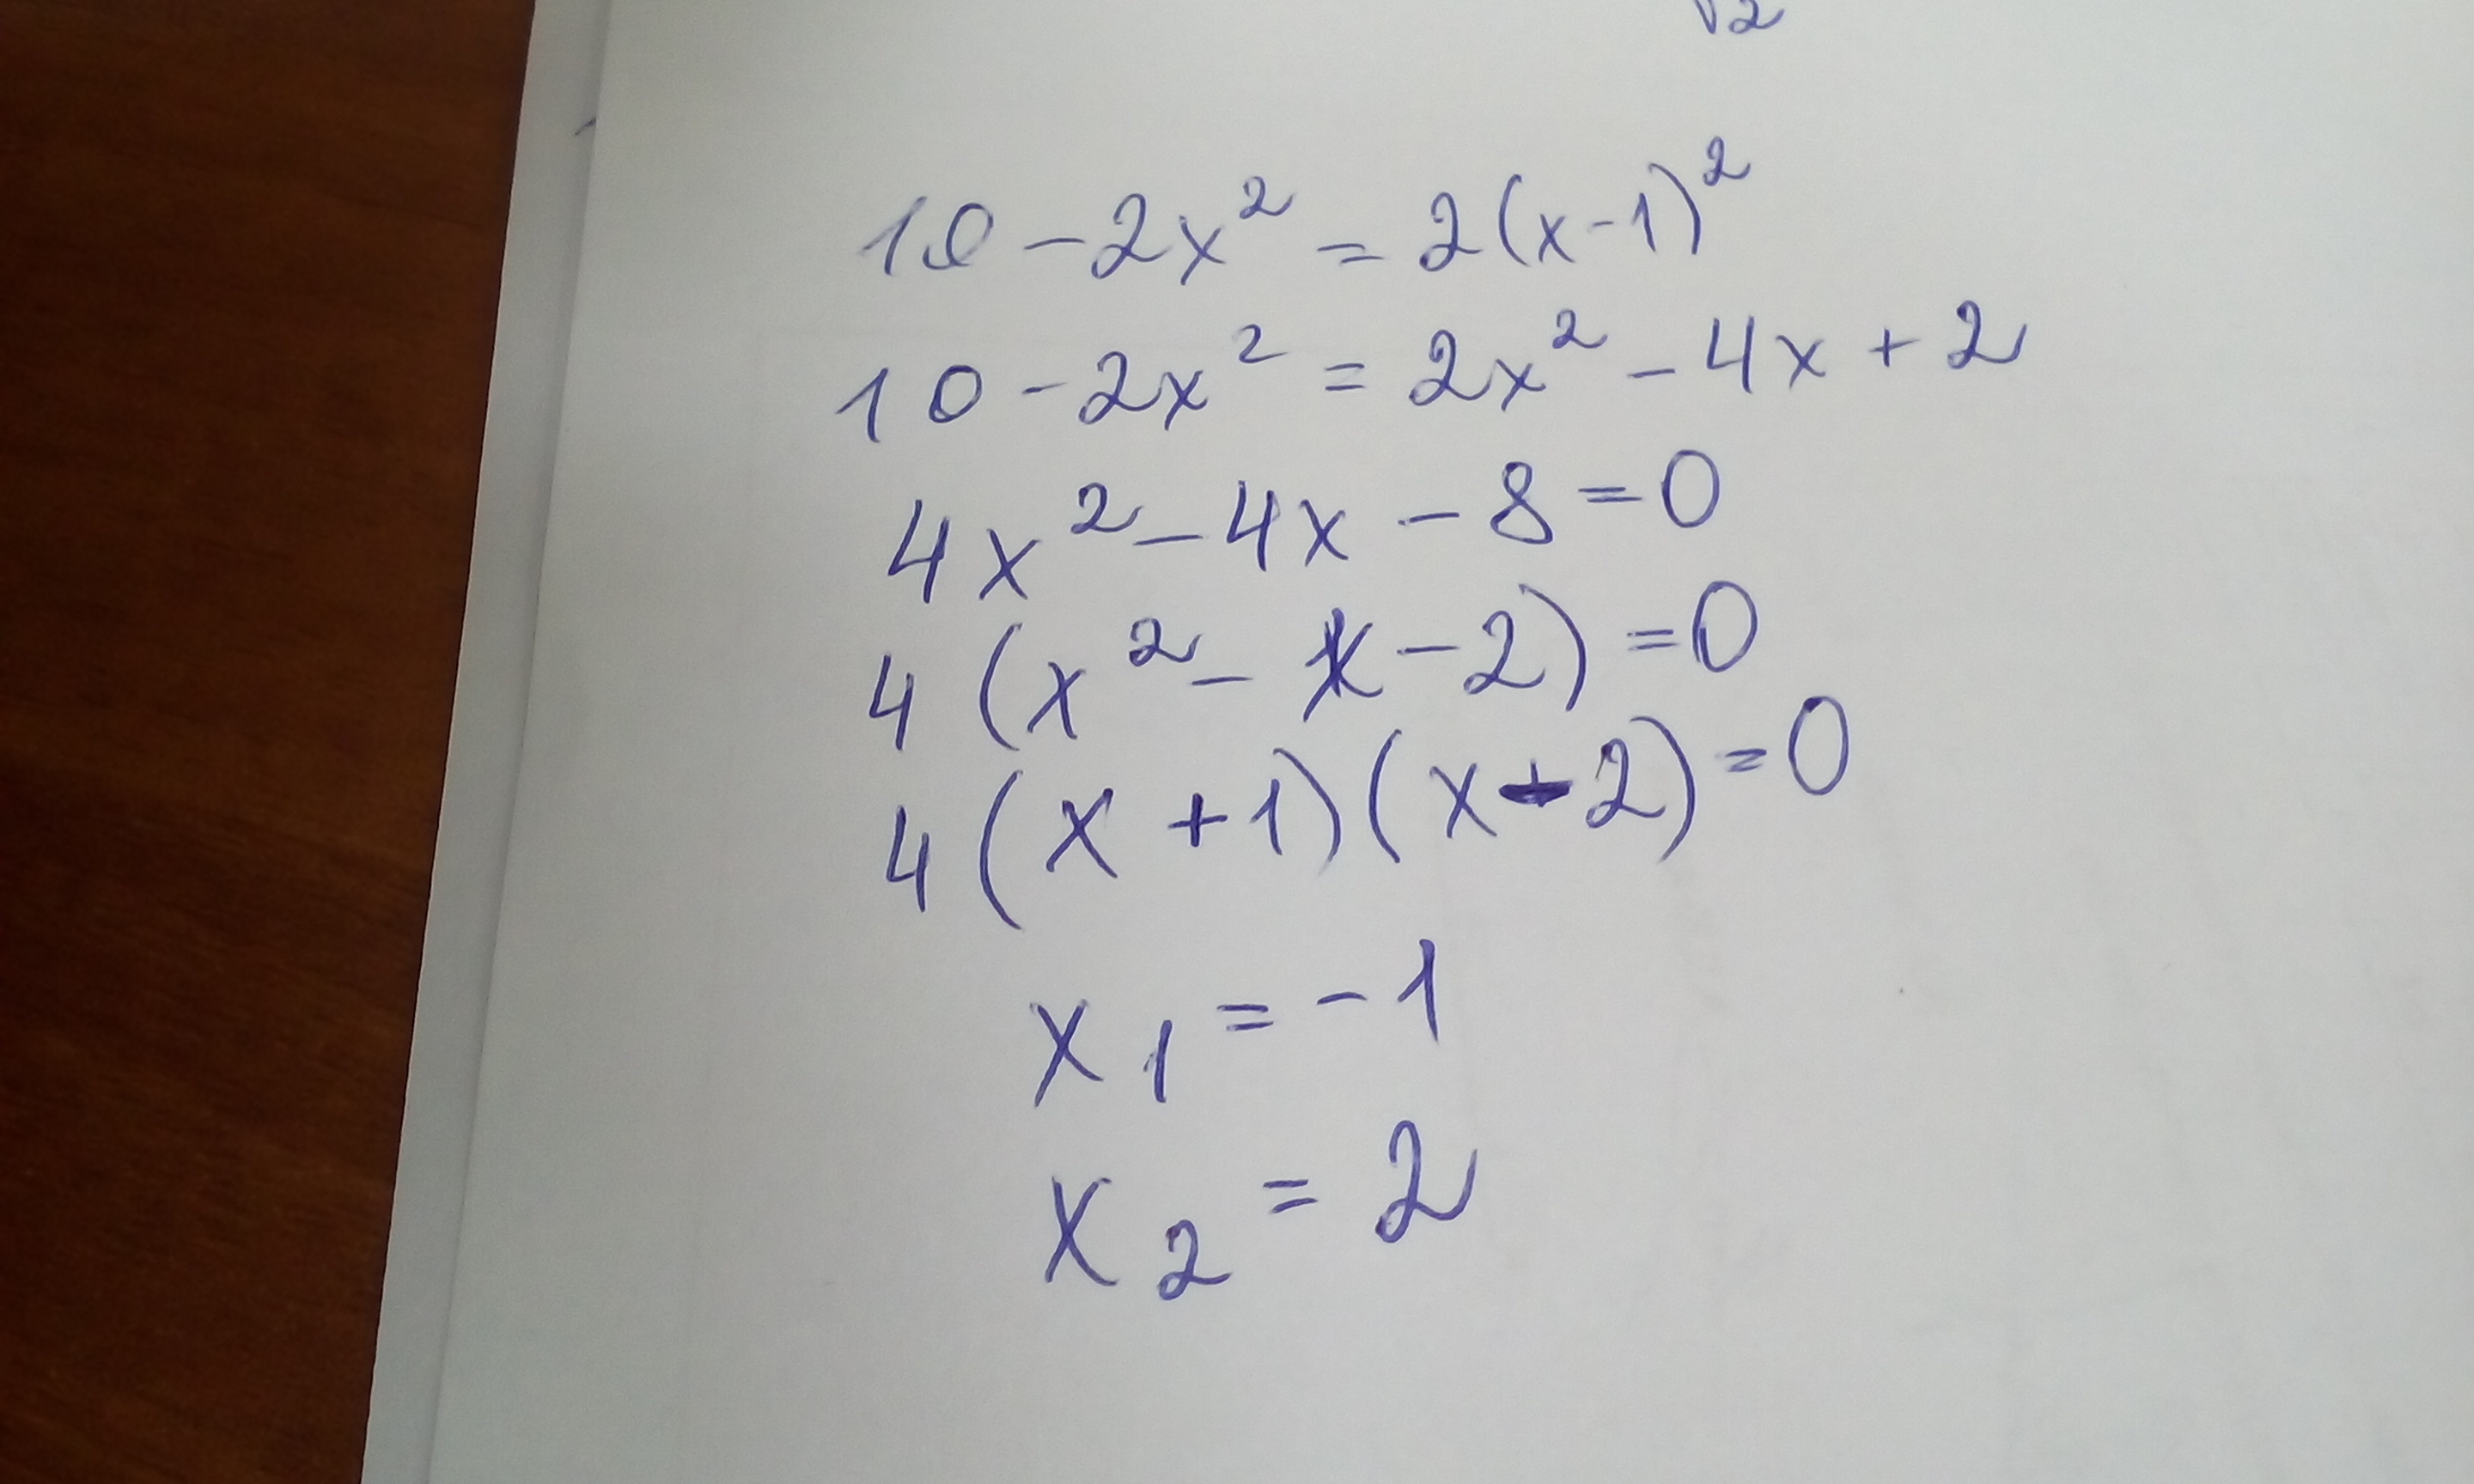 √2
10 - 2x² = 2(x-1)²
10 - 2x² = 2x² - 4x + 2
4x² - 4x - 8 = 0
4(x² - x - 2) = 0
4(x + 1)(x - 2) = 0
x₁ = -1
x₂ = 2